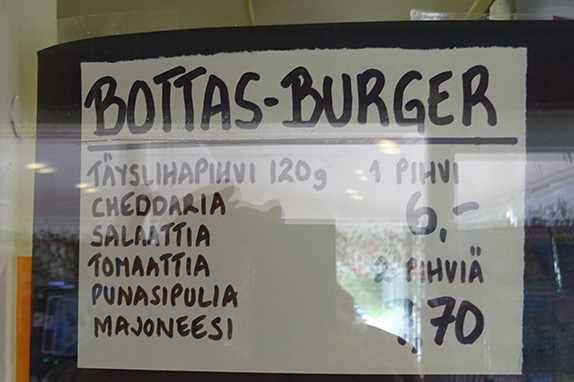 BOTTAS-BURGER
TÄYSLIHAPIHVI 120g 1 PIHVI
CHEDDARIA 6,-
SALAATTIA
TOMAATTIA 2 PIHVIÄ
PUNASIPULIA 7,70
MAJONEESI